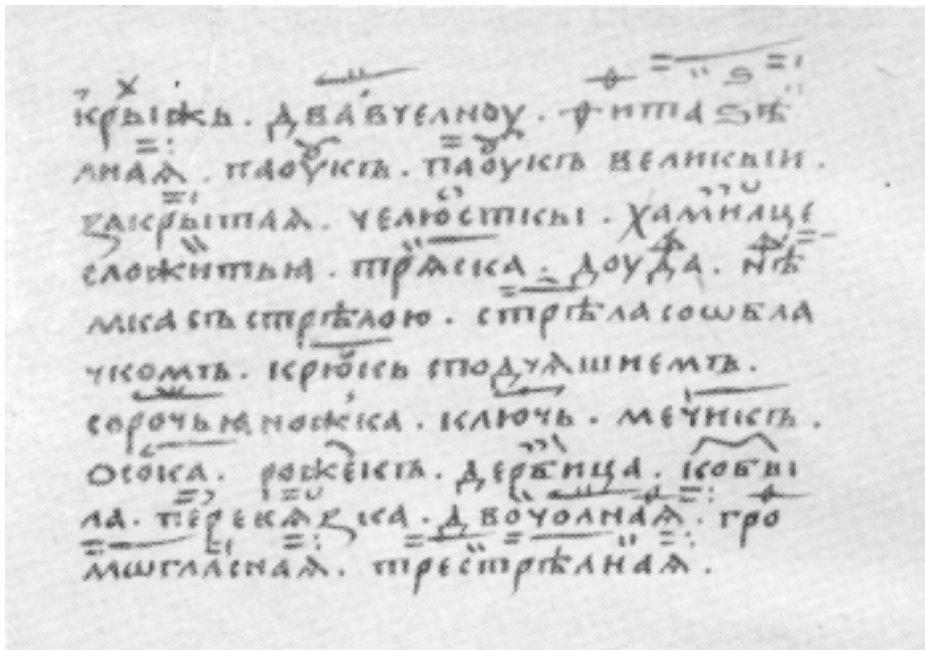 крыжь . два в челноу . фита ѕѣ
лнаѧ . паоукъ . паоукъ великыи .
закрытаѧ . челюсткы . хамилце
сложитьѧ . трѧска . доуда . нѣ
мка съ стрѣлою . стрѣла сѡбла
чкомъ . крюкь сподчѧшиемъ .
сорочьѧ ножка . ключь . мечикъ .
осока . рожекъ . дербица . кобы
ла . перевѧзка . двочолнаѧ . гро
мѡгласнаѧ . трестрѣлнаѧ .